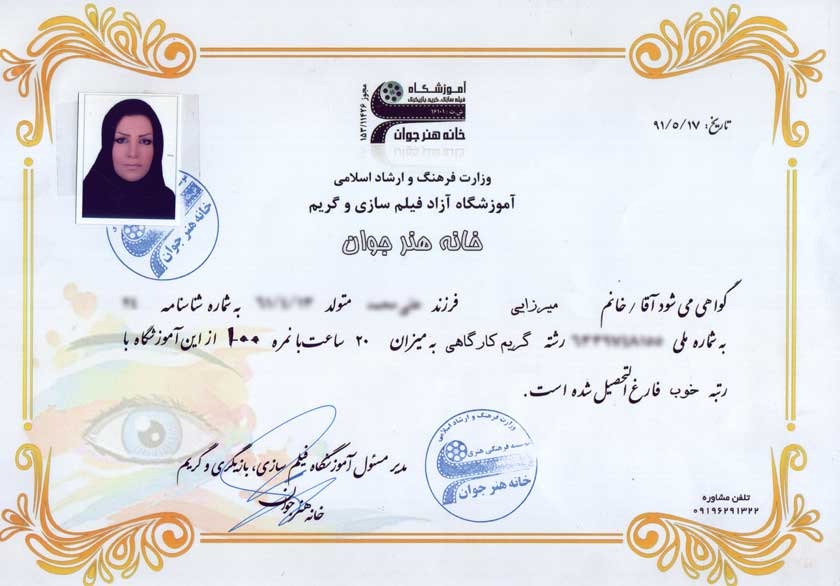 آموزشگاه
فیلم سازی، گریم، بازیگری
خانه هنر جوان
مجوز ۱۵۳/۱۱۴۲۶
تاریخ: ۹۱/۵/۱۷
وزارت فرهنگ و ارشاد اسلامی
آموزشگاه آزاد فیلم سازی و گریم
خانه هنر جوان
گواهی می شود آقا / خانم میرزایی فرزند متولد به شماره شناسنامه
به شماره ملی رشته گریم کارگاهی به میزان ۲۰ ساعت با نمره ۱۰۰ از این آموزشگاه با
رتبه خوب فارغ التحصیل شده است.
مدیر مسئول آموزشگاه فیلم سازی، بازیگری و گریم
خانه هنر جوان
وزارت فرهنگ و ارشاد اسلامی
موسسه فرهنگی هنری
خانه هنر جوان
خانه هنر جوان
تلفن مشاوره
۰۹۱۹۶۲۹۱۳۲۲